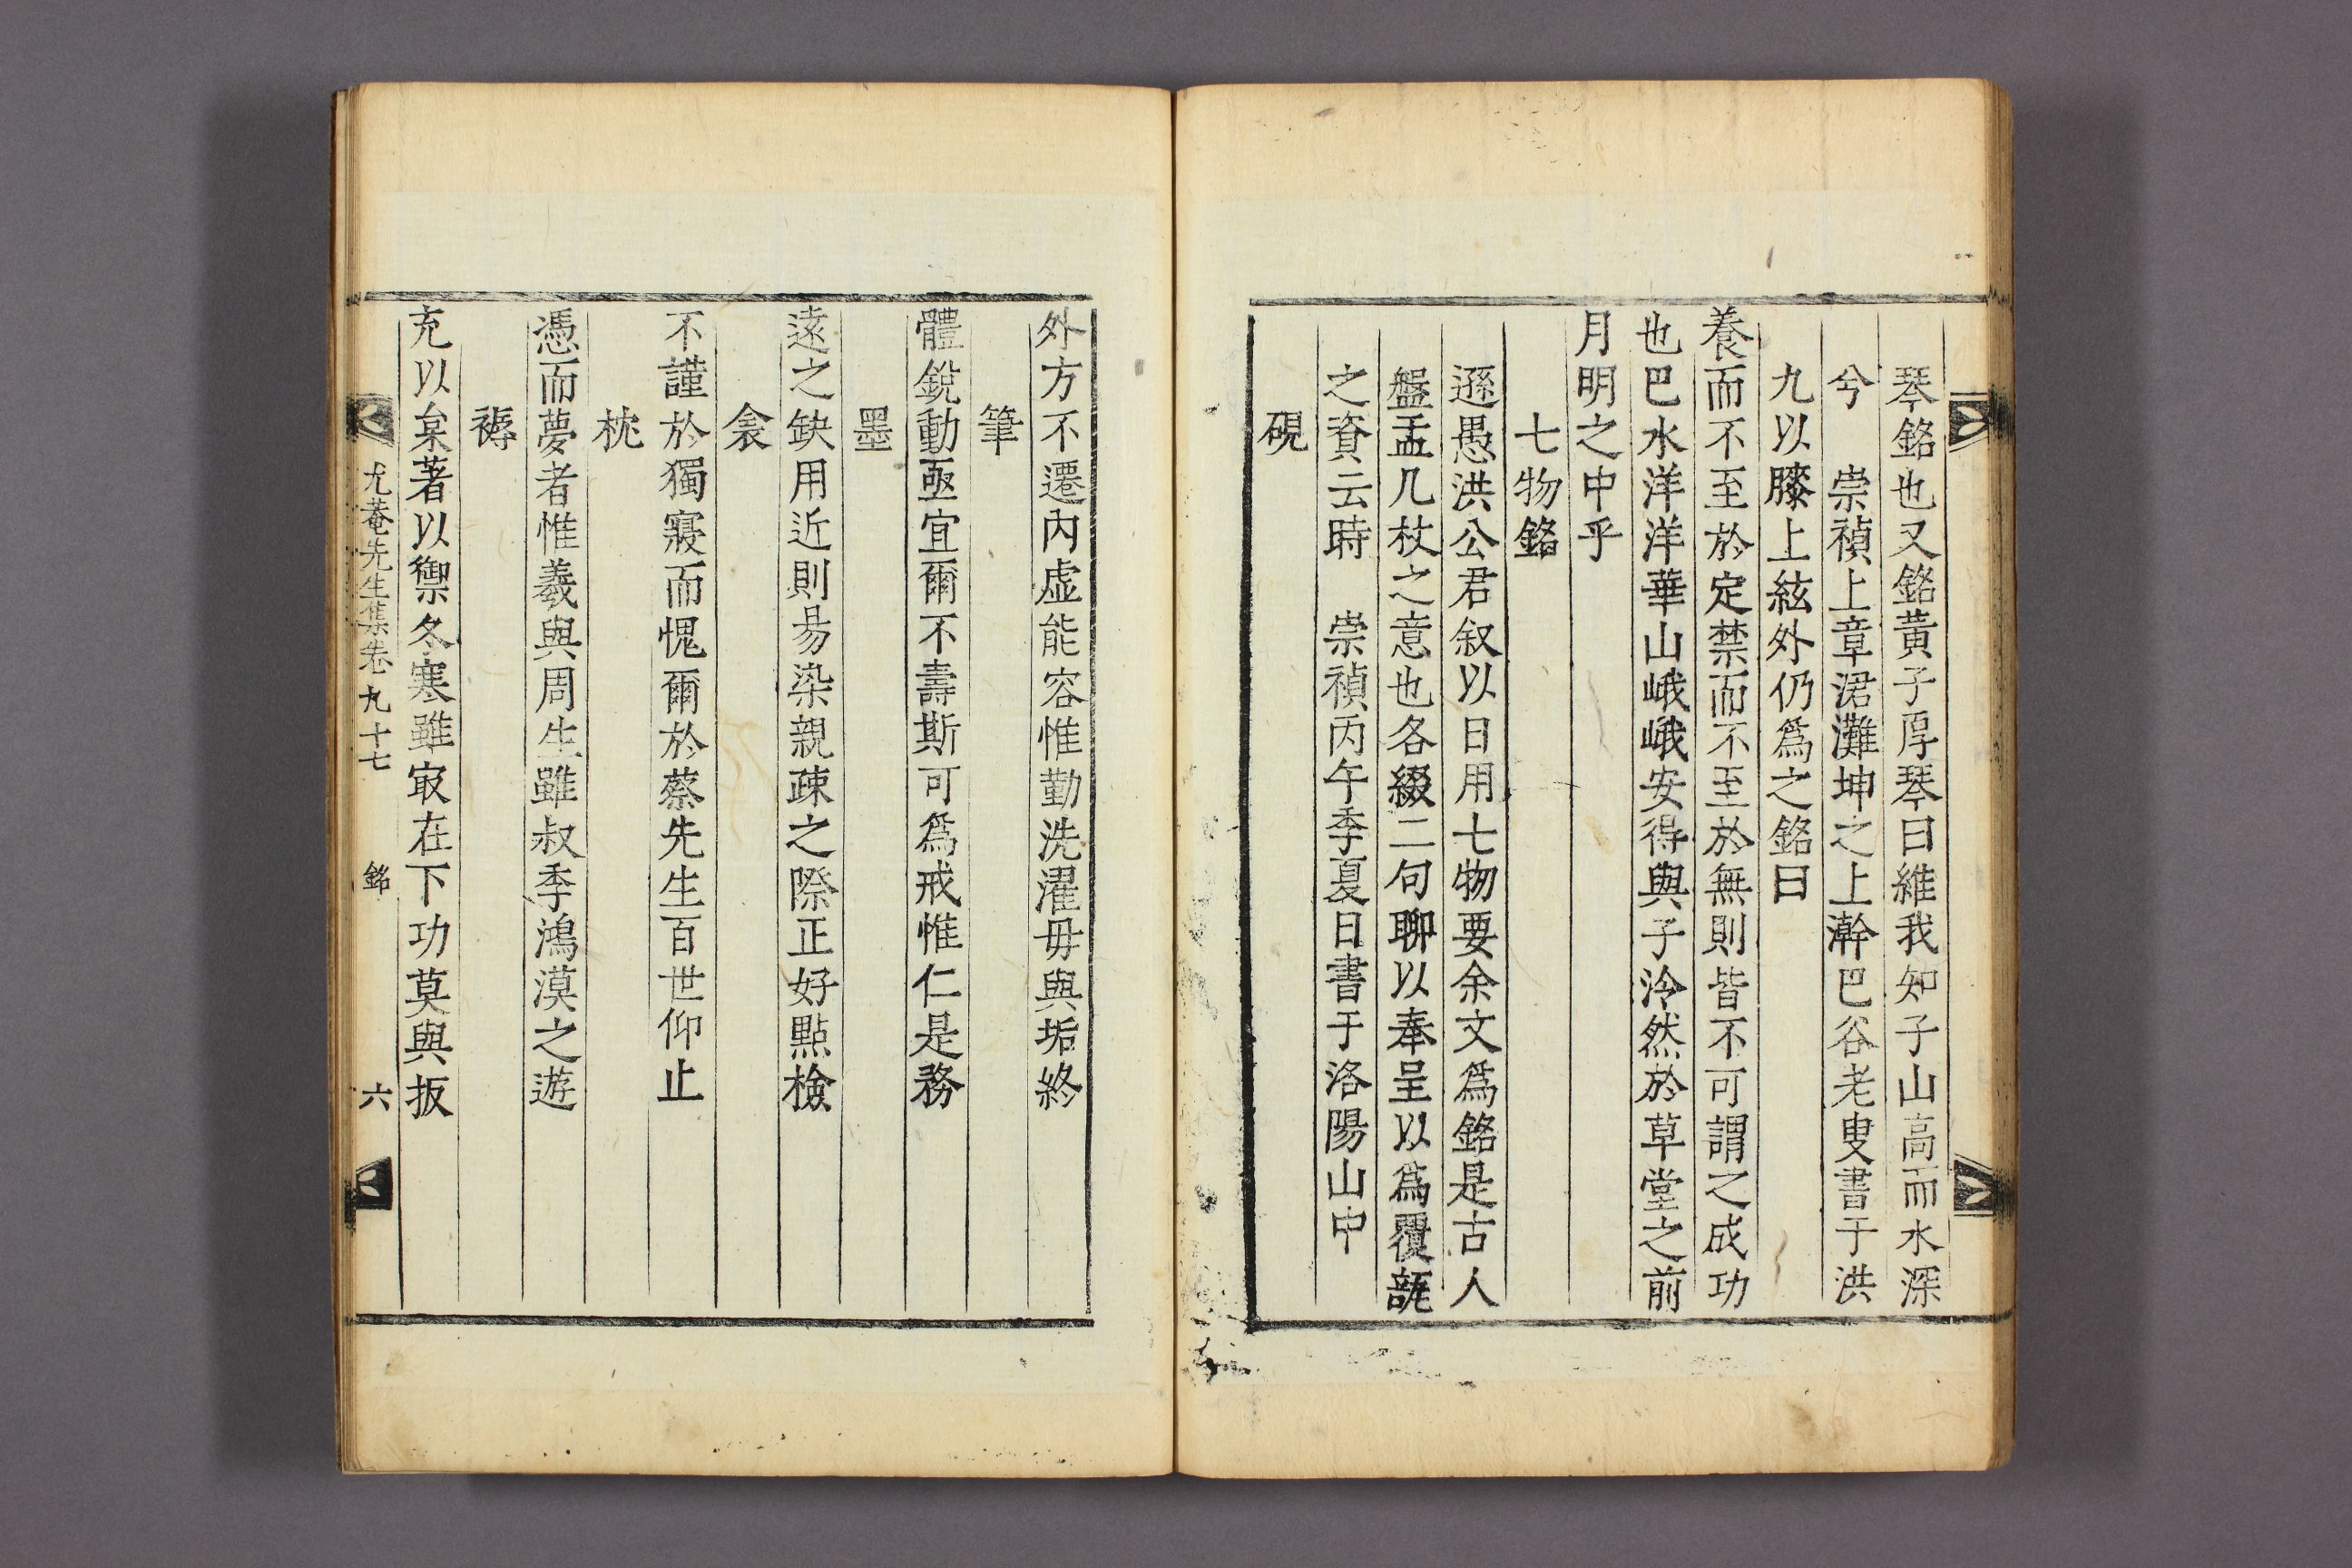 琴銘也又銘黃子厚琴曰維我知子山高而水深
兮　崇禎上章涒灘坤之上澣巴谷老叟書于洪
九以膝上絃外仍爲之銘曰
養而不至於定禁而不至於無則皆不可謂之成功
也巴水洋洋華山峨峨安得與子泠然於草堂之前
月明之中乎
七物銘
遜愚洪公君叙以日用七物要余文爲銘是古人
盤盂几杖之意也各綴二句聊以奉呈以爲覆瓿
之資云時　崇禎丙午季夏日書于洛陽山中
硯
外方不遷內虛能容惟勤洗濯毋與垢終
筆
體銳動亟宜爾不壽斯可爲戒惟仁是務
墨
遠之缺用近則易染親疎之際正好點檢
衾
不謹於獨寢而愧爾於蔡先生百世仰止
枕
憑而夢者惟羲與周生雖叔季鴻漠之遊
褥
充以枲著以禦冬寒雖㝡在下功莫與扳
尤菴先生集卷九十七　銘　六